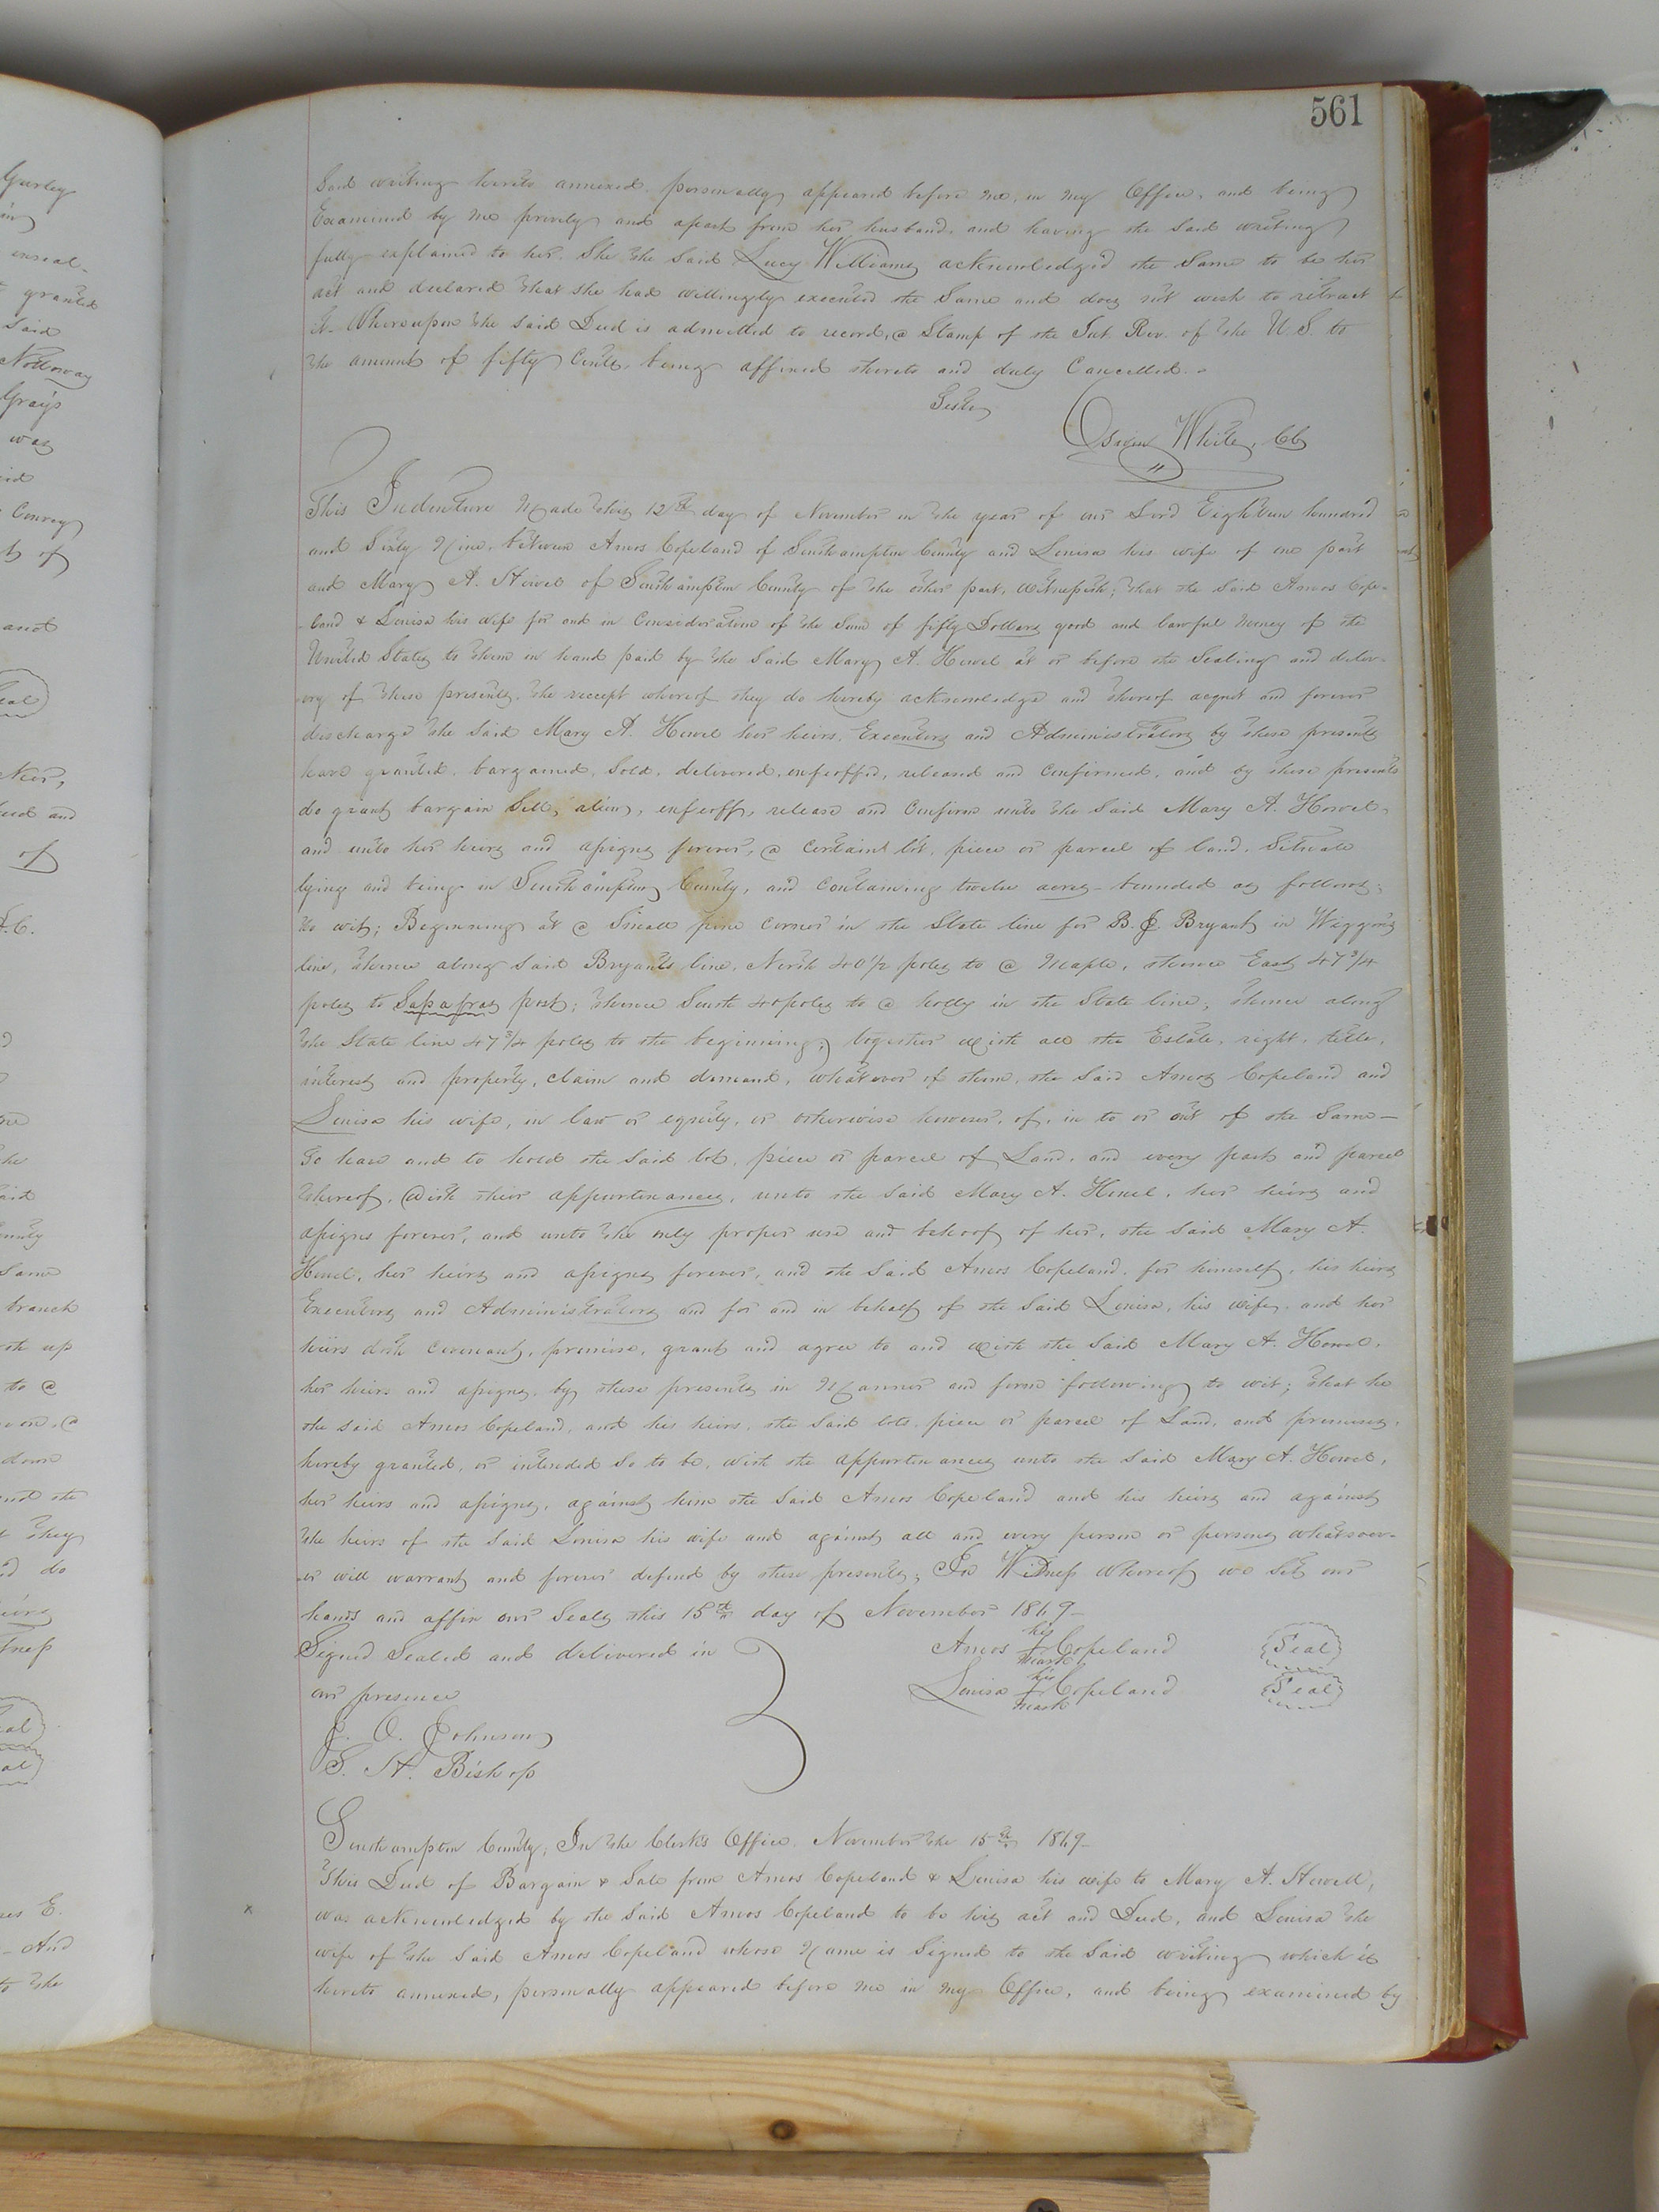 561
Said writing hereto annexed, personally appeared before me, in my Office, and being
Examined by me privily and apart from her husband, and having the said writing
fully explained to her. She the said Lucy Williams acknowledged the Same to be her
act and declared that she had willingly executed the Same and does not wish to retract
it. Whereupon the said Deed is admitted to record, a Stamp of the Int. Rev. of the U.S. to
the amount of fifty Cents, being affixed thereto and duly Cancelled.
Teste,
White, CC
This Indenture Made this 12th day of November in the year of our Lord Eighteen hundred
and Sixty Nine, between Amos Copeland of Southampton County and Louisa his wife of one part
and Mary A. Howel of Southampton County of the other part, Witnesseth; that the said Amos Cope-
land & Louisa his wife for and in Consideration of the Sum of fifty Dollars good and lawful money of the
United States to them in hand paid by the Said Mary A. Howel at or before the Sealing and deliv-
ery of these presents, the receipt whereof they do hereby acknowledge and thereof acquit and forever
discharge the Said Mary A. Howel her heirs, Executors and Administrators by these presents
have granted, bargained, Sold, delivered, enfeoffed, released and Confirmed, and by these presents
do grant bargain Sell, alien, enfeoff, release and Confirm unto the Said Mary A. Howel,
and unto her heirs and assigns forever, a Certaint lot, piece or parcel of land, Situate
lying and being in Southampton County, and Containing twelve acres bounded as follows;
To wit; Beginning at a Small pine Corner in the State line for B. J. Bryant in Wiggins
line, thence along Said Bryants line, North 40 1/2 poles to a Maple, thence East 47 3/4
poles to Sassafras post; thence South 40 poles to a holly in the State line, thence along
the State line 47 3/4 poles to the beginning; together with all the Estate, right, title,
interest and property, claim and demand, whatever of them, the Said Amos Copeland and
Louisa his wife, in law or equity, or otherwise however, of, in to or out of the Same —
To have and to hold the Said lot, piece or parcel of Land, and every part and parcel
thereof, With their appurtenances, unto the Said Mary A. Howel, her heirs and
assigns forever, and unto the only proper use and behoof of her, the Said Mary A.
Howel, her heirs and assigns forever, and the Said Amos Copeland, for himself, his heirs
Executors and Administrators and for and in behalf of the Said Louisa, his wife, and her
heirs doth Covenant, promise, grant and agree to and with the Said Mary A. Howel,
her heirs and assigns, by these presents in Manner and form following to wit; that he
the said Amos Copeland, and his heirs, the Said lots, piece or parcel of Land, and premises,
hereby granted, or intended So to be, with the appurtenances unto the Said Mary A. Howel,
her heirs and assigns, against him the Said Amos Copeland and his heirs and against
the heirs of the Said Louisa his wife and against all and every person or persons whatsoev-
er will warrant and forever defend by these presents; In Witness Whereof we Set our
hands and affix our Seals this 15th day of November 1869 —
Signed Sealed and delivered in
our presence
J. O. Johnson
S. H. Bishop
his
Amos + Copeland Seal
mark
his
Louisa + Copeland Seal
mark
Southampton County; In the Clerk's Office, November the 15th 1869 —
This Deed of Bargain & Sale from Amos Copeland & Louisa his wife to Mary A. Howell,
was acknowledged by the Said Amos Copeland to be his act and Deed, and Louisa the
wife of the Said Amos Copeland whose Name is Signed to the Said writing which is
hereto annexed, personally appeared before me in my Office, and being examined by